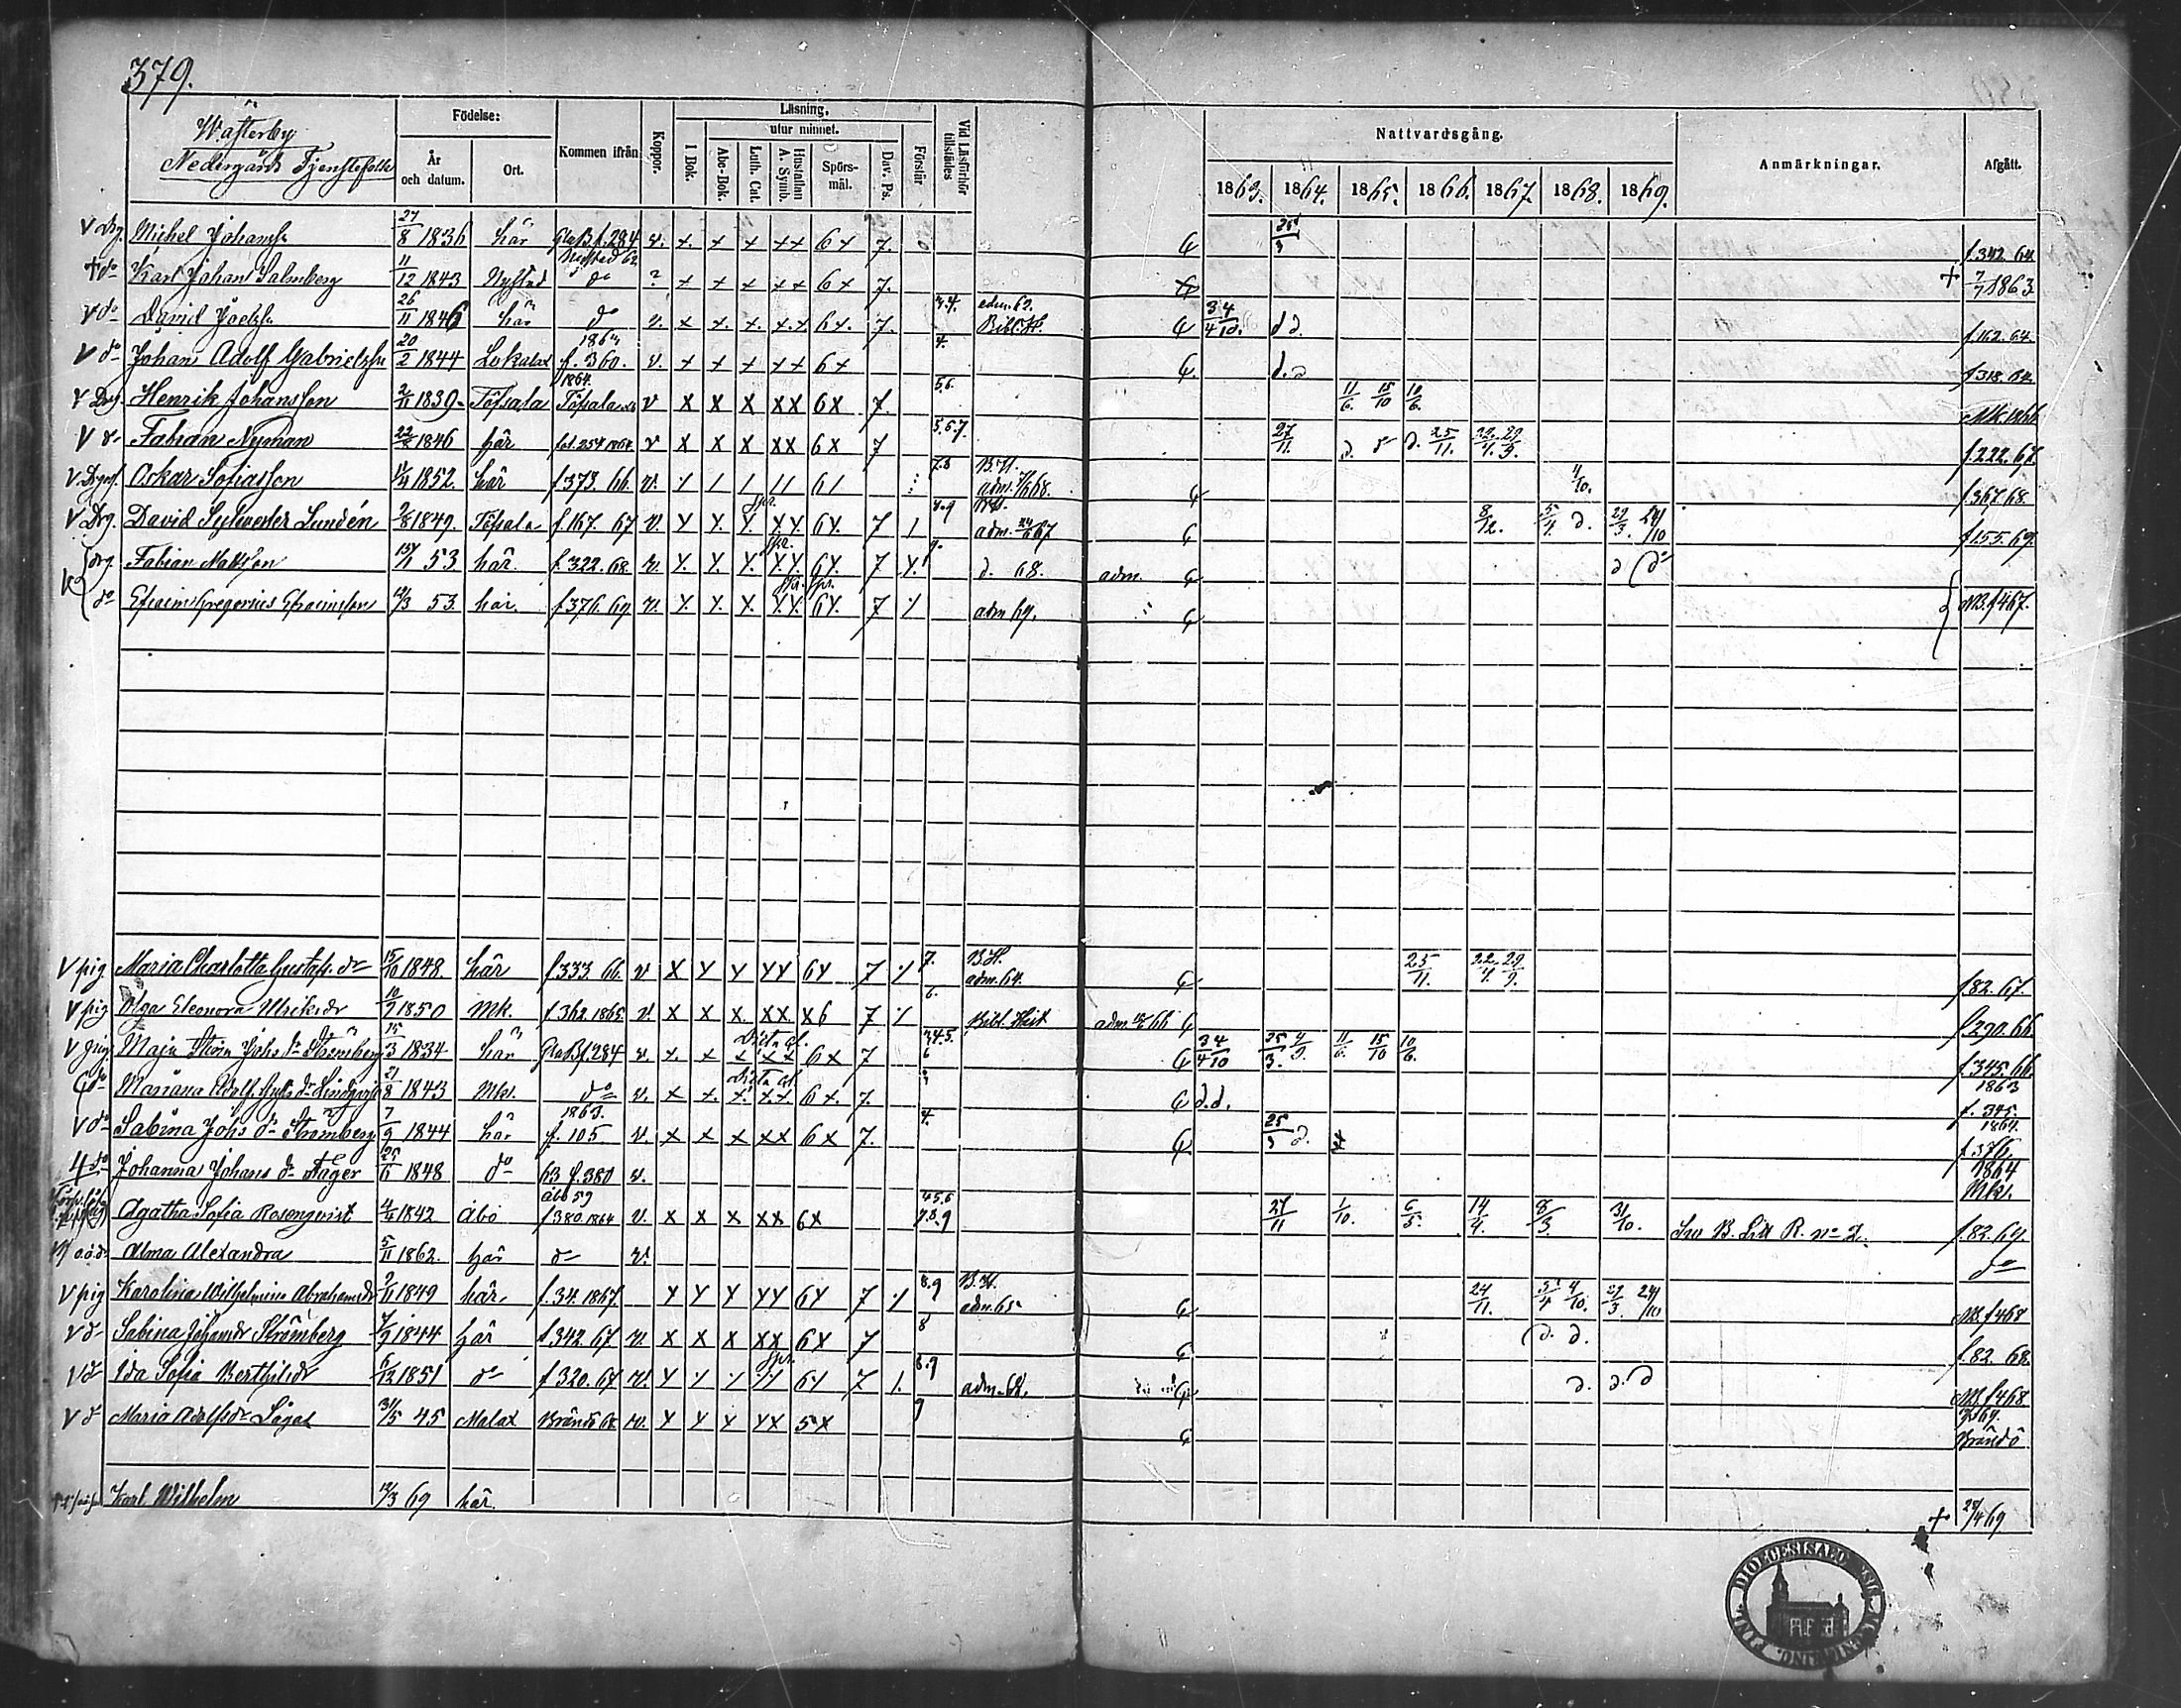 379.
Wästerby
Nedergårds Tjenstefolk
Födelse:
År och datum.
Ort.
Kommen ifrån
Koppor.
Läsning,
utur minnet.
I Bok.
Abc-Bok.
Luth. Cat.
Hustaflan A. Symb.
Spörs-mål.
Dav. Ps.
Förstår
Vid Läsförhör tillstädes
Nattvardsgång.
1863. 1864. 1865. 1866. 1867. 1868. 1869.
Anmärkningar.
Afgått.
v drg. Michel Johanss. 27/8 1836 här Gla B f. 284 v. x. x x xx 6x 7. f. 342. 64
+ do Karl Johan Salmberg 11/12 1843 Nystad do ? x x x xx 6x 7. + 7/7 1863.
v do David Joelss. 26/11 1846 här do v. x x. x. x.x 6x. 7. 3.4. Bibl. H. 3/4 4/10. d d. f. 162. 64.
v do Johan Adolf Gabrielss. 20/2 1844 Lokalax f. 360. v. x x x xx 6x 4. d. d f 318. 64.
v Drg. Henrik Johansson 2/11 1839 Töfsala Töfsala v x x x xx 6x 7. 5.6. 11/6. 15/10 10/6.
v d Fabian Nyman 22/8 1846 här fol. 254 1864 v x x x xx 6x 7 5.6.7. 27/11. d. d d. 25/11. 22/4. 29/9. f. 222. 67.
Oskar Sofiasson 1852. här f 373. 66. v. B.H. 4/10. f 367. 68.
v Drg. David Sylwester Lundén 1849. Töfsala f. 167. 67 v. x x. x. xx. 6x. 7 1 8.9 adm. 67 8/12. 5/4. d. 29/3. 24/10 f 155. 69.
drg. Fabian Mattsson 53 här. f. 322. 68. v. x. x. x. xx. 6x. 7 d. 68. adm. d do
do Efraim Gregorius Efraimsson 12/3 53. här. f. 376. 69 v. x. x. x. xx. 6x. 7 adm 69. NB. f 467.
v pig Maria Charlotta Gustafs. dr 15/10 1848. här f. 333. 66. v x x x xx 6x 7 7. B.H. adm. 64. 25/11. 22/4. 29/9. f 82. 67.
v pig Olga Eleonora Ulriksdr 10/9 1850 Mk. f. 362. 1865. v. x x x. xx. x6 7 6. Bibl. Hist adm 66 f. 290. 66
v pig Maja Stina Johs dr Strömberg 15/3 1834 här Gla B f. 284 v. x. x x xx 6x 7 3.4.5. 6 3/4 4/10 25/3. 4/9. 11/6. 15/10 10/6. f. 345. 66.
do Mariana Adolf Gust. dr 21/8 1843 Mk. do v. x x. x. x.x. 6x. 7. d.d. 1863 f. 345.
v do Sabina Johs dr Strömberg 7/9 1844 här 1863. f. 105 v. x x x xx 6x 7. 4. 25/3 d. 1864. f 376.
do Johanna Johans dr Fager 25/6 1848 do 63 f. 380 v. 1864 Mk.
Agatha Sofia Rosenqvist 1842 Åbo Åbo 59 f 380. 1864 v. x x x xx 6x 4.5.6 7.8.9 27/11 1/10. 6/5. 14/4. 8/3. 31/10. Sw B. Litt R. no 2. f. 82. 69
Alma Alexandra 5/11 1862. här d v. do
v pig Karolina Wilhelmina Abrahamsdr 1849 här f. 34. 1867. x x x xx 6x 7 8.9 B.H. adm. 65 24/11. 5/4 4/10. 29/3. 24/10 NB. f 468
v d Sabina Johansdr Strömberg 7/9 1844 här f. 342. 67 v. x x x xx 6x 7 8 d. d. f. 82. 68.
v d Ida Sofia Berthilsdr 6/12 1851 d f 320. 67 v. 7 8.9 adm. d. d. d NB. f 468
v d Maria Adolfsdr 31/5 45 Malax Brändö 68 v. x x x xx 5x 9 Brändö
Karl Wilhelm 12/3 69 här. + 28/4 69
DIOECESIS ABO